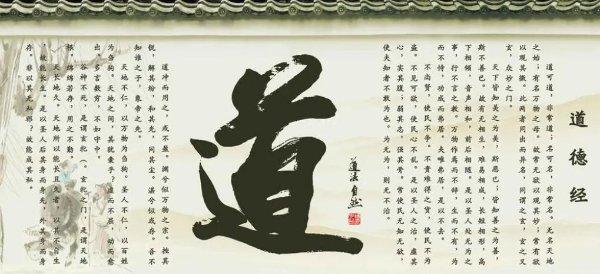 道德经
道可道，非常道；名可名，非常名。无名天地
之始；有名万物之母。故常无欲以观其妙；常有欲
以观其徼。此两者同出而异名，同谓之玄，玄之又
玄，众妙之门。
天下皆知美之为美，斯恶已；皆知善之为善，
斯不善已。故有无相生，难易相成，长短相形，高
下相倾，音声相和，前后相随。是以圣人处无为之
事，行不言之教。万物作焉而不辞，生而不有，为
而不恃，功成而弗居。夫唯弗居，是以不去。
不尚贤，使民不争；不贵难得之货，使民不为
盗。不见可欲，使民心不乱。是以圣人之治，虚其
心，实其腹；弱其志，强其骨。常使民无知无欲，
使夫知者不敢为也。为无为，则无不治。
道法自然
道
道冲而用之，或不盈。渊兮似万物之宗。挫其
锐，解其纷，和其光，同其尘。湛兮似或存。吾不
知谁之子，象帝之先。
天地不仁，以万物为刍狗；圣人不仁，以百姓
为刍狗。天地之间，其犹橐龠乎？虚而不屈，动而愈
出。多言数穷，不如守中。
谷神不死，是谓玄牝。玄牝之门，是谓天地
根。绵绵若存，用之不勤。
天长地久。天地所以能长且久者，以其不自生，
故能长生。是以圣人后其身而身先，外其身而身
存。非以其无私邪？故能成其私。